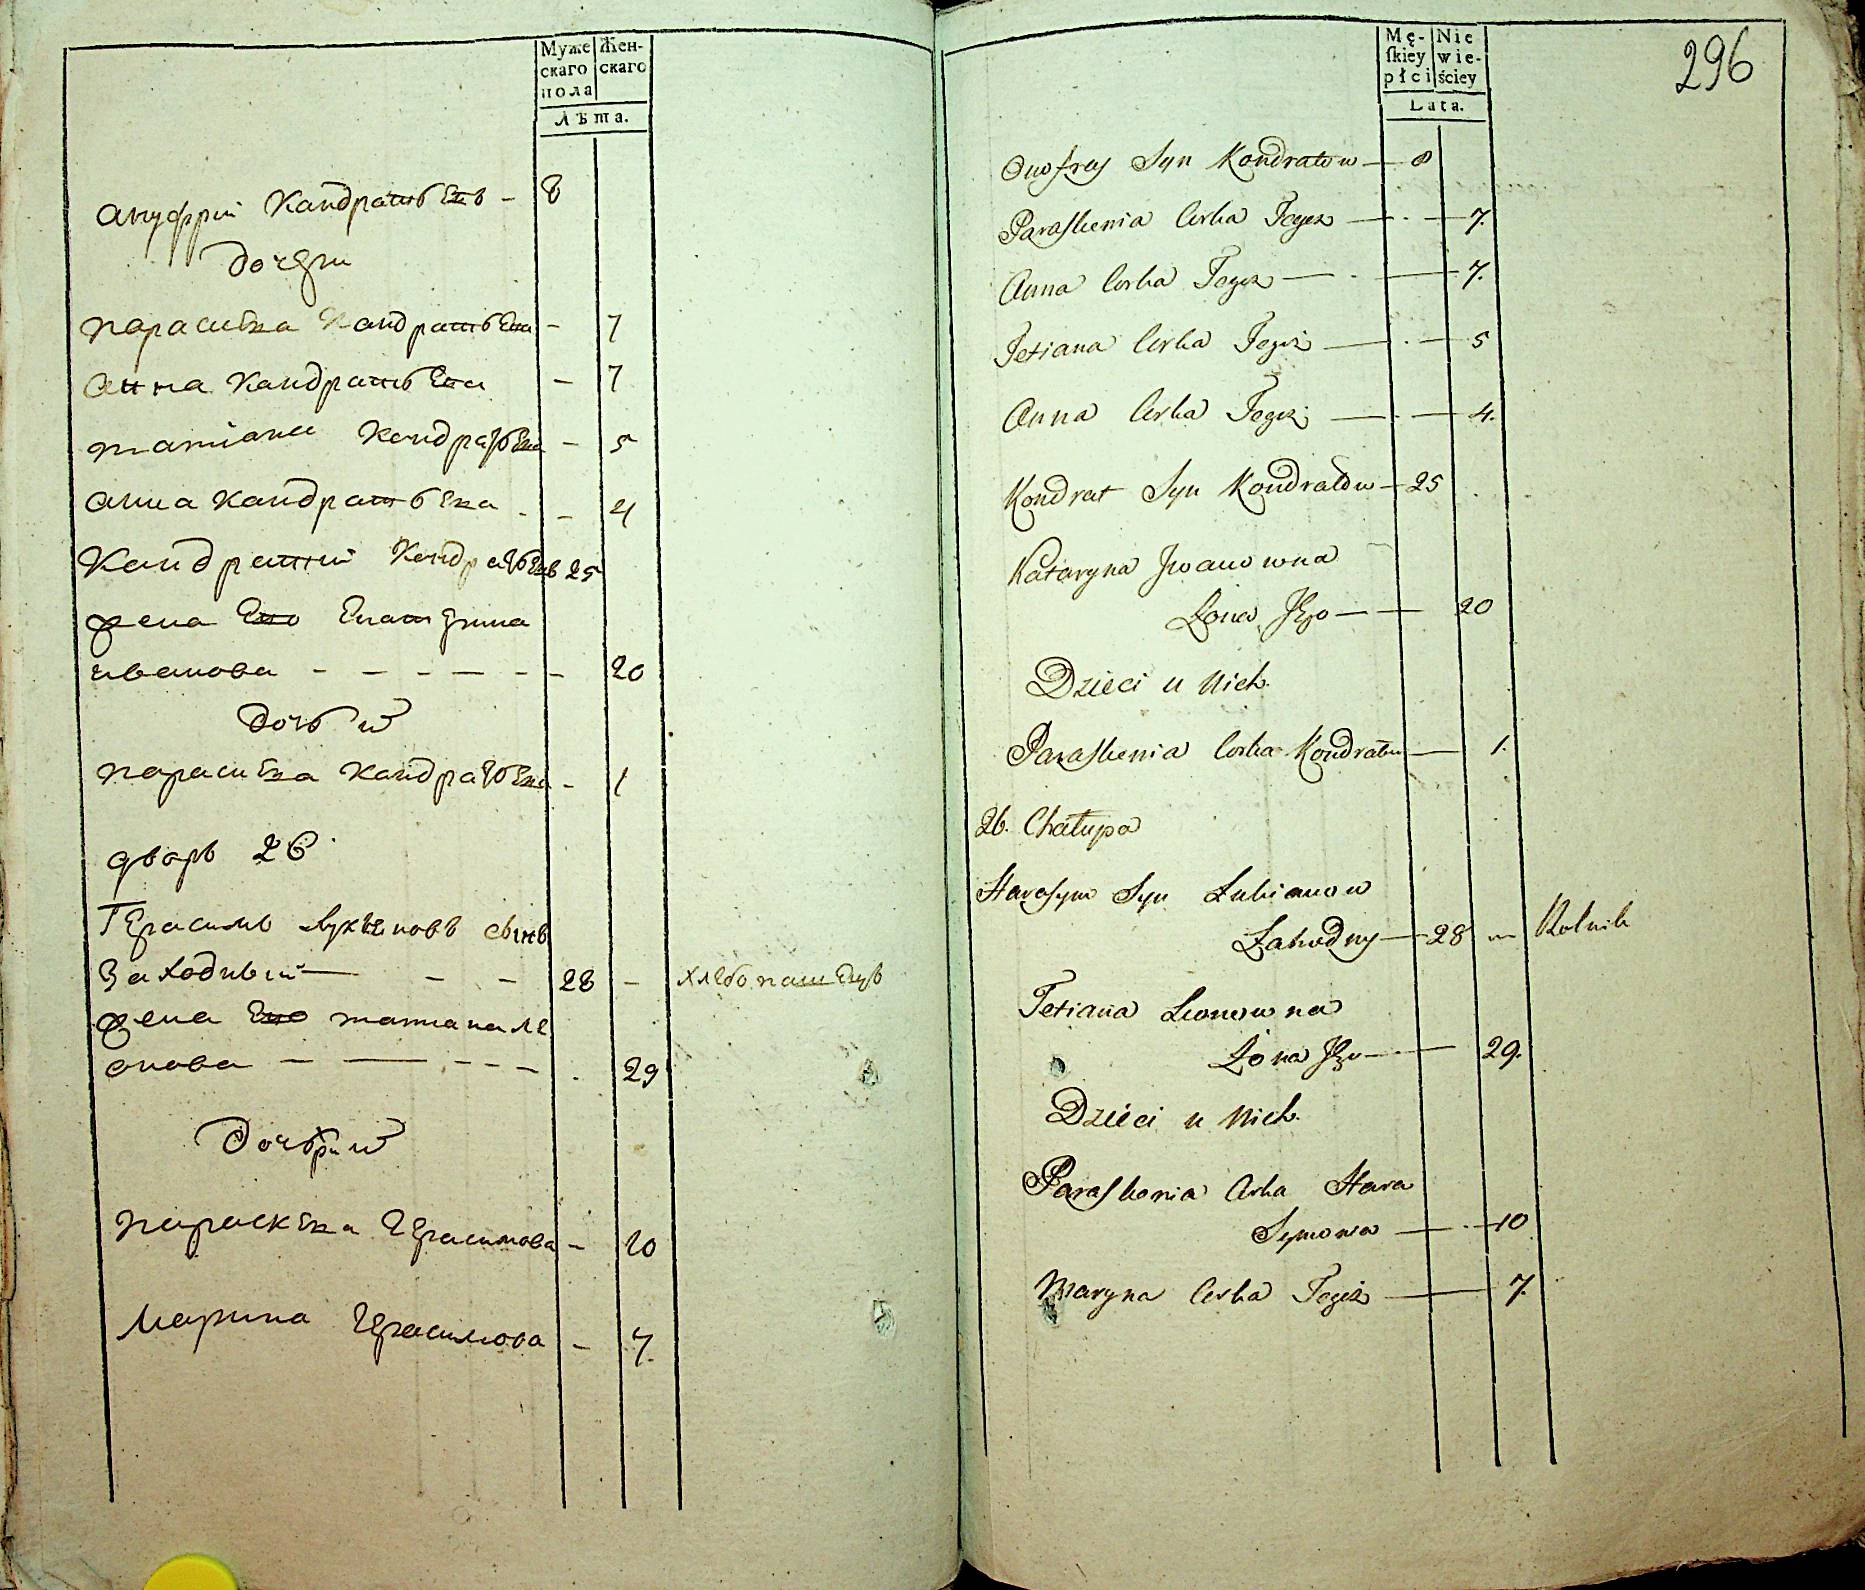 Муже Жен-
скаго скаго
пола
Лѣта.
Ануфрий Кандратьевъ - 8
Дочери
Параскева Кандратьева - 7
Анна Кандратьева - 7
Татіана Кандратьева - 5
Анна Кандратьева - - 4
Кандратий Кандратьевъ 25
Жена Ево Екатерина
Иванова - - - - - - 20
Дочь их
Параскева Кандратьева - 1
Дворъ 26
Герасимъ Лукяновъ Сынъ
Заходный - - 28 - хлебопашецъ
Жена Ево татиана Ле
онова - - - - - 29
Дочери их
Параскева Герасимова - 10
Марина Герасимова - 7.
296
Mę- Nie
ſkiey wie-
płci ściey
Lata.
Onofrey Syn Kondratow — 8
Paraskewia Corka Tegoż — · — 7.
Anna Corka Tegoż — · — 7.
Tetiana Corka Tegoż — · — 5
Anna Corka Tegoż — · — 4.
Kondrat Syn Kondratow — 25
Kataryna Jwanowna
Żona Jego — — 20
Dzieci u Nich.
Paraskewia Corka Kondratow — 1.
26. Chałupa
Harasym Syn Lukianow
Zahodny — 28 — Rolnik
Tetiana Leonowna
Żona Jego — · — 29.
Dzieci u Nich.
Paraskewia Corka Hara
Symowa — · — 10
Maryna Corka Tegoż — 7.